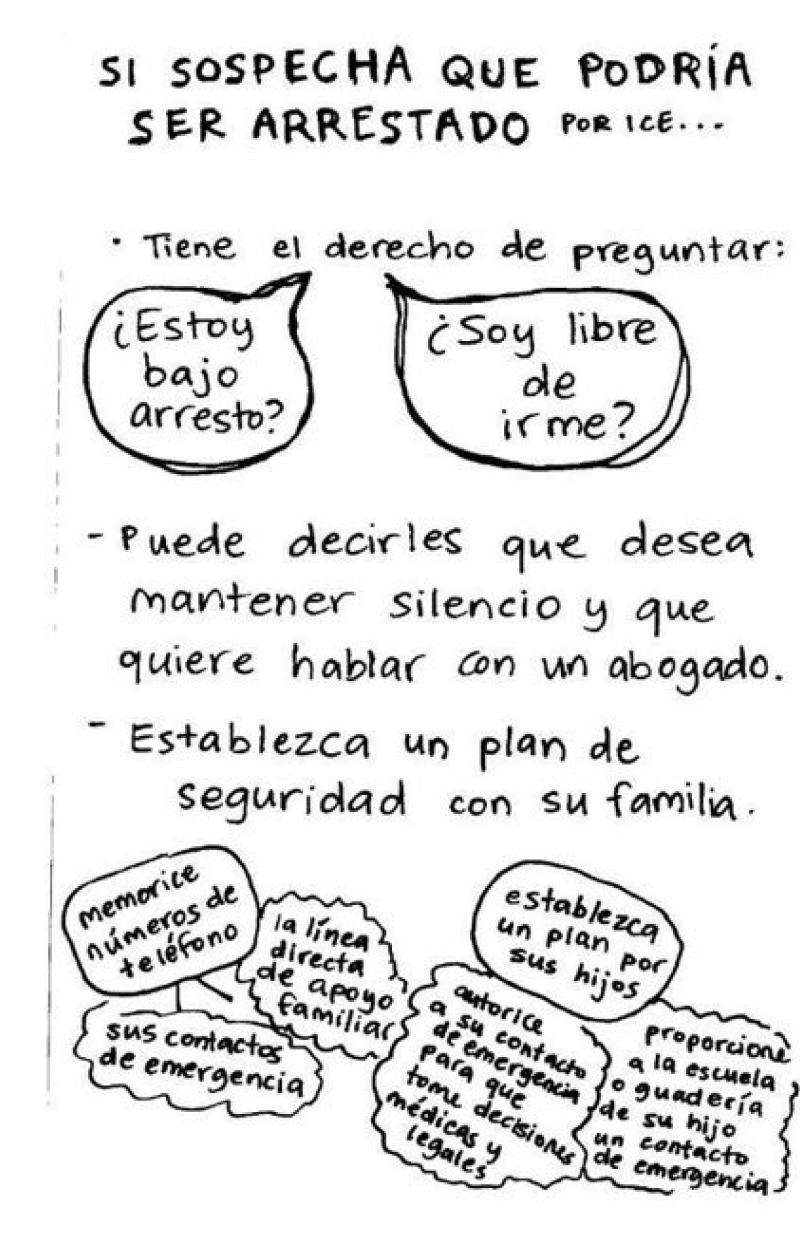 SI SOSPECHA QUE PODRÍA
SER ARRESTADO POR ICE...
· Tiene el derecho de preguntar:
¿Estoy
bajo
arresto?
¿Soy libre
de
irme?
- Puede decirles que desea
mantener silencio y que
quiere hablar con un abogado.
- Establezca un plan de
seguridad con su familia.
memorice
números de
teléfono
la línea
directa
de apoyo
familiar
sus contactos
de emergencia
establezca
un plan por
sus hijos
autorice
a su contacto
de emergencia
para que
tome decisiones
médicas y
legales
proporcione
a la escuela
o guadería
de su hijo
un contacto
de emergencia